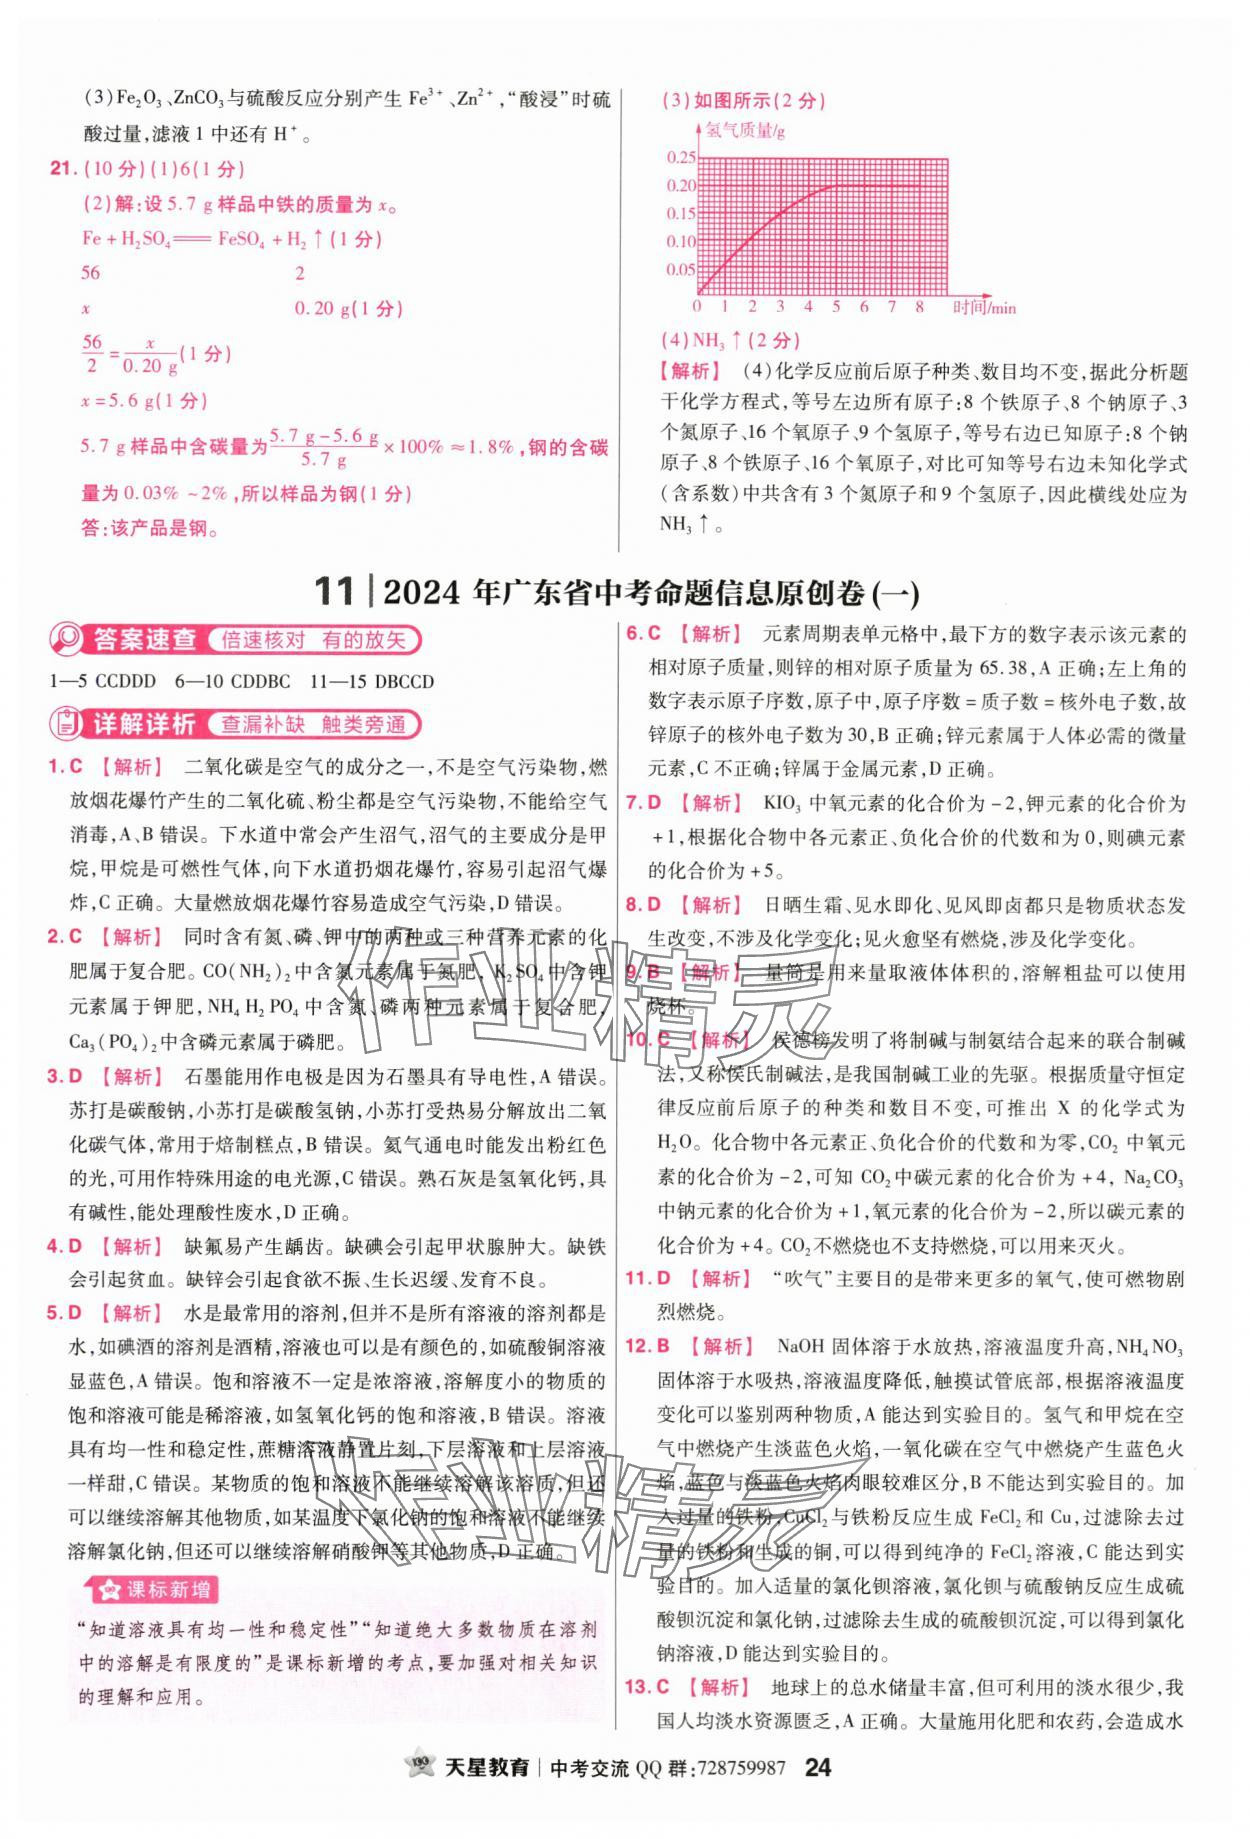 (3)Fe₂O₃、ZnCO₃与硫酸反应分别产生 Fe³⁺、Zn²⁺,“酸浸”时硫
酸过量,滤液1中还有H⁺。
21.(10分)(1)6(1分)
(2)解:设5.7 g样品中铁的质量为x。
Fe + H₂SO₄══FeSO₄ + H₂↑(1分)
56 2
x 0.20 g(1分)
56/2 = x/0.20 g(1分)
x=5.6 g(1分)
5.7 g样品中含碳量为(5.7 g-5.6 g)/5.7 g×100% ≈1.8%,钢的含碳
量为0.03% ~2%,所以样品为钢(1分)
答:该产品是钢。
(3)如图所示(2分)
氢气质量/g
0.25
0.20
0.15
0.10
0.05
0 1 2 3 4 5 6 7 8 时间/min
(4)NH₃↑(2分)
【解析】 (4)化学反应前后原子种类、数目均不变,据此分析题
干化学方程式,等号左边所有原子:8个铁原子、8个钠原子、3
个氮原子、16个氧原子、9个氢原子,等号右边已知原子:8个钠
原子、8个铁原子、16个氧原子,对比可知等号右边未知化学式
(含系数)中共含有3个氮原子和9个氢原子,因此横线处应为
NH₃↑。
11 | 2024 年广东省中考命题信息原创卷(一)
答案速查 倍速核对 有的放矢
1—5 CCDDD 6—10 CDDBC 11—15 DBCCD
详解详析 查漏补缺 触类旁通
1.C 【解析】 二氧化碳是空气的成分之一,不是空气污染物,燃
放烟花爆竹产生的二氧化硫、粉尘都是空气污染物,不能给空气
消毒,A、B错误。下水道中常会产生沼气,沼气的主要成分是甲
烷,甲烷是可燃性气体,向下水道扔烟花爆竹,容易引起沼气爆
炸,C正确。大量燃放烟花爆竹容易造成空气污染,D错误。
2.C 【解析】 同时含有氮、磷、钾中的两种或三种营养元素的化
肥属于复合肥。CO(NH₂)₂中含氮元素属于氮肥,K₂SO₄中含钾
元素属于钾肥,NH₄H₂PO₄中含氮、磷两种元素属于复合肥,
Ca₃(PO₄)₂中含磷元素属于磷肥。
3.D 【解析】 石墨能用作电极是因为石墨具有导电性,A错误。
苏打是碳酸钠,小苏打是碳酸氢钠,小苏打受热易分解放出二氧
化碳气体,常用于焙制糕点,B错误。氦气通电时能发出粉红色
的光,可用作特殊用途的电光源,C错误。熟石灰是氢氧化钙,具
有碱性,能处理酸性废水,D正确。
4.D 【解析】 缺氟易产生龋齿。缺碘会引起甲状腺肿大。缺铁
会引起贫血。缺锌会引起食欲不振、生长迟缓、发育不良。
5.D 【解析】 水是最常用的溶剂,但并不是所有溶液的溶剂都是
水,如碘酒的溶剂是酒精,溶液也可以是有颜色的,如硫酸铜溶液
显蓝色,A错误。饱和溶液不一定是浓溶液,溶解度小的物质的
饱和溶液可能是稀溶液,如氢氧化钙的饱和溶液,B错误。溶液
具有均一性和稳定性,蔗糖溶液静置片刻,下层溶液和上层溶液
一样甜,C错误。某物质的饱和溶液不能继续溶解该溶质,但还
可以继续溶解其他物质,如某温度下氯化钠的饱和溶液不能继续
溶解氯化钠,但还可以继续溶解硝酸钾等其他物质,D正确。
课标新增
“知道溶液具有均一性和稳定性”“知道绝大多数物质在溶剂
中的溶解是有限度的”是课标新增的考点,要加强对相关知识
的理解和应用。
6.C 【解析】 元素周期表单元格中,最下方的数字表示该元素的
相对原子质量,则锌的相对原子质量为65.38,A正确;左上角的
数字表示原子序数,原子中,原子序数=质子数=核外电子数,故
锌原子的核外电子数为30,B正确;锌元素属于人体必需的微量
元素,C不正确;锌属于金属元素,D正确。
7.D 【解析】 KIO₃中氧元素的化合价为-2,钾元素的化合价为
+1,根据化合物中各元素正、负化合价的代数和为0,则碘元素
的化合价为+5。
8.D 【解析】 日晒生霜、见水即化、见风即卤都只是物质状态发
生改变,不涉及化学变化;见火愈坚有燃烧,涉及化学变化。
9.B 【解析】 量筒是用来量取液体体积的,溶解粗盐可以使用
烧杯。
10.C 【解析】 侯德榜发明了将制碱与制氨结合起来的联合制碱
法,又称侯氏制碱法,是我国制碱工业的先驱。根据质量守恒定
律反应前后原子的种类和数目不变,可推出X的化学式为
H₂O。化合物中各元素正、负化合价的代数和为零,CO₂中氧元
素的化合价为-2,可知CO₂中碳元素的化合价为+4, Na₂CO₃
中钠元素的化合价为+1,氧元素的化合价为-2,所以碳元素的
化合价为+4。CO₂不燃烧也不支持燃烧,可以用来灭火。
11.D 【解析】 “吹气”主要目的是带来更多的氧气,使可燃物剧
烈燃烧。
12.B 【解析】 NaOH固体溶于水放热,溶液温度升高,NH₄NO₃
固体溶于水吸热,溶液温度降低,触摸试管底部,根据溶液温度
变化可以鉴别两种物质,A能达到实验目的。氢气和甲烷在空
气中燃烧产生淡蓝色火焰,一氧化碳在空气中燃烧产生蓝色火
焰,蓝色与淡蓝色火焰肉眼较难区分,B不能达到实验目的。加
入过量的铁粉,CuCl₂与铁粉反应生成FeCl₂和Cu,过滤除去过
量的铁粉和生成的铜,可以得到纯净的FeCl₂溶液,C能达到实
验目的。加入适量的氯化钡溶液,氯化钡与硫酸钠反应生成硫
酸钡沉淀和氯化钠,过滤除去生成的硫酸钡沉淀,可以得到氯化
钠溶液,D能达到实验目的。
13.C 【解析】 地球上的总水储量丰富,但可利用的淡水很少,我
国人均淡水资源匮乏,A正确。大量施用化肥和农药,会造成水
作业精灵
作业精灵
天星教育 | 中考交流QQ群:728759987 24